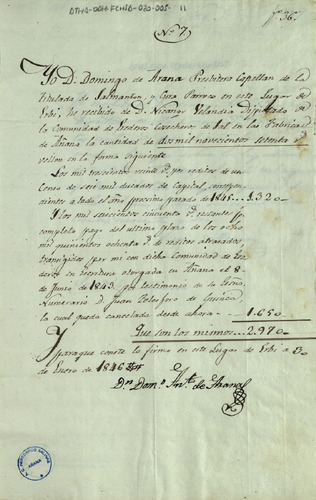 DTHD-001-FCHIA-070-005- 11
fº 36.
Nº 7
Yo D. Domingo de Arana Presbitero Capellan de la
titulada de Salmanton y Cura Parroco en este Lugar de
Urbi, he recibido de D. Nicanor Velandia Diputado de
la Comunidad de Erederos Cosecheros de Sal en las Fabricas
de Añana la cantidad de dos mil novecientos setenta rˢ
vellon en la forma siguiente
Los mil trescientos veinte rˢ por reditos de un
Censo de seis mil ducados de Capital, correspon-
dientes a todo el año proximo pasado de 1845.. 1.320..
Y los mil seiscientos cincuenta rˢ restantes por
completo pago del ultimo plazo de los ocho
mil quinientos ochenta rˢ de reditos atrasados,
transigidos por mi con dicha Comunidad de Ere-
deros en Escritura otorgada en Añana el 8 de
Junio de 1843 por testimonio de la Escno
Numerario D. Juan Telesforo de Guinea
la cual queda cancelada desde ahora 1.650
Que son los mismos.. 2.970..
Y para que conste la firmo en este Lugar de Urbi a 30
de Enero de 1846
Dn Domº Antº de Arana
AÑANA